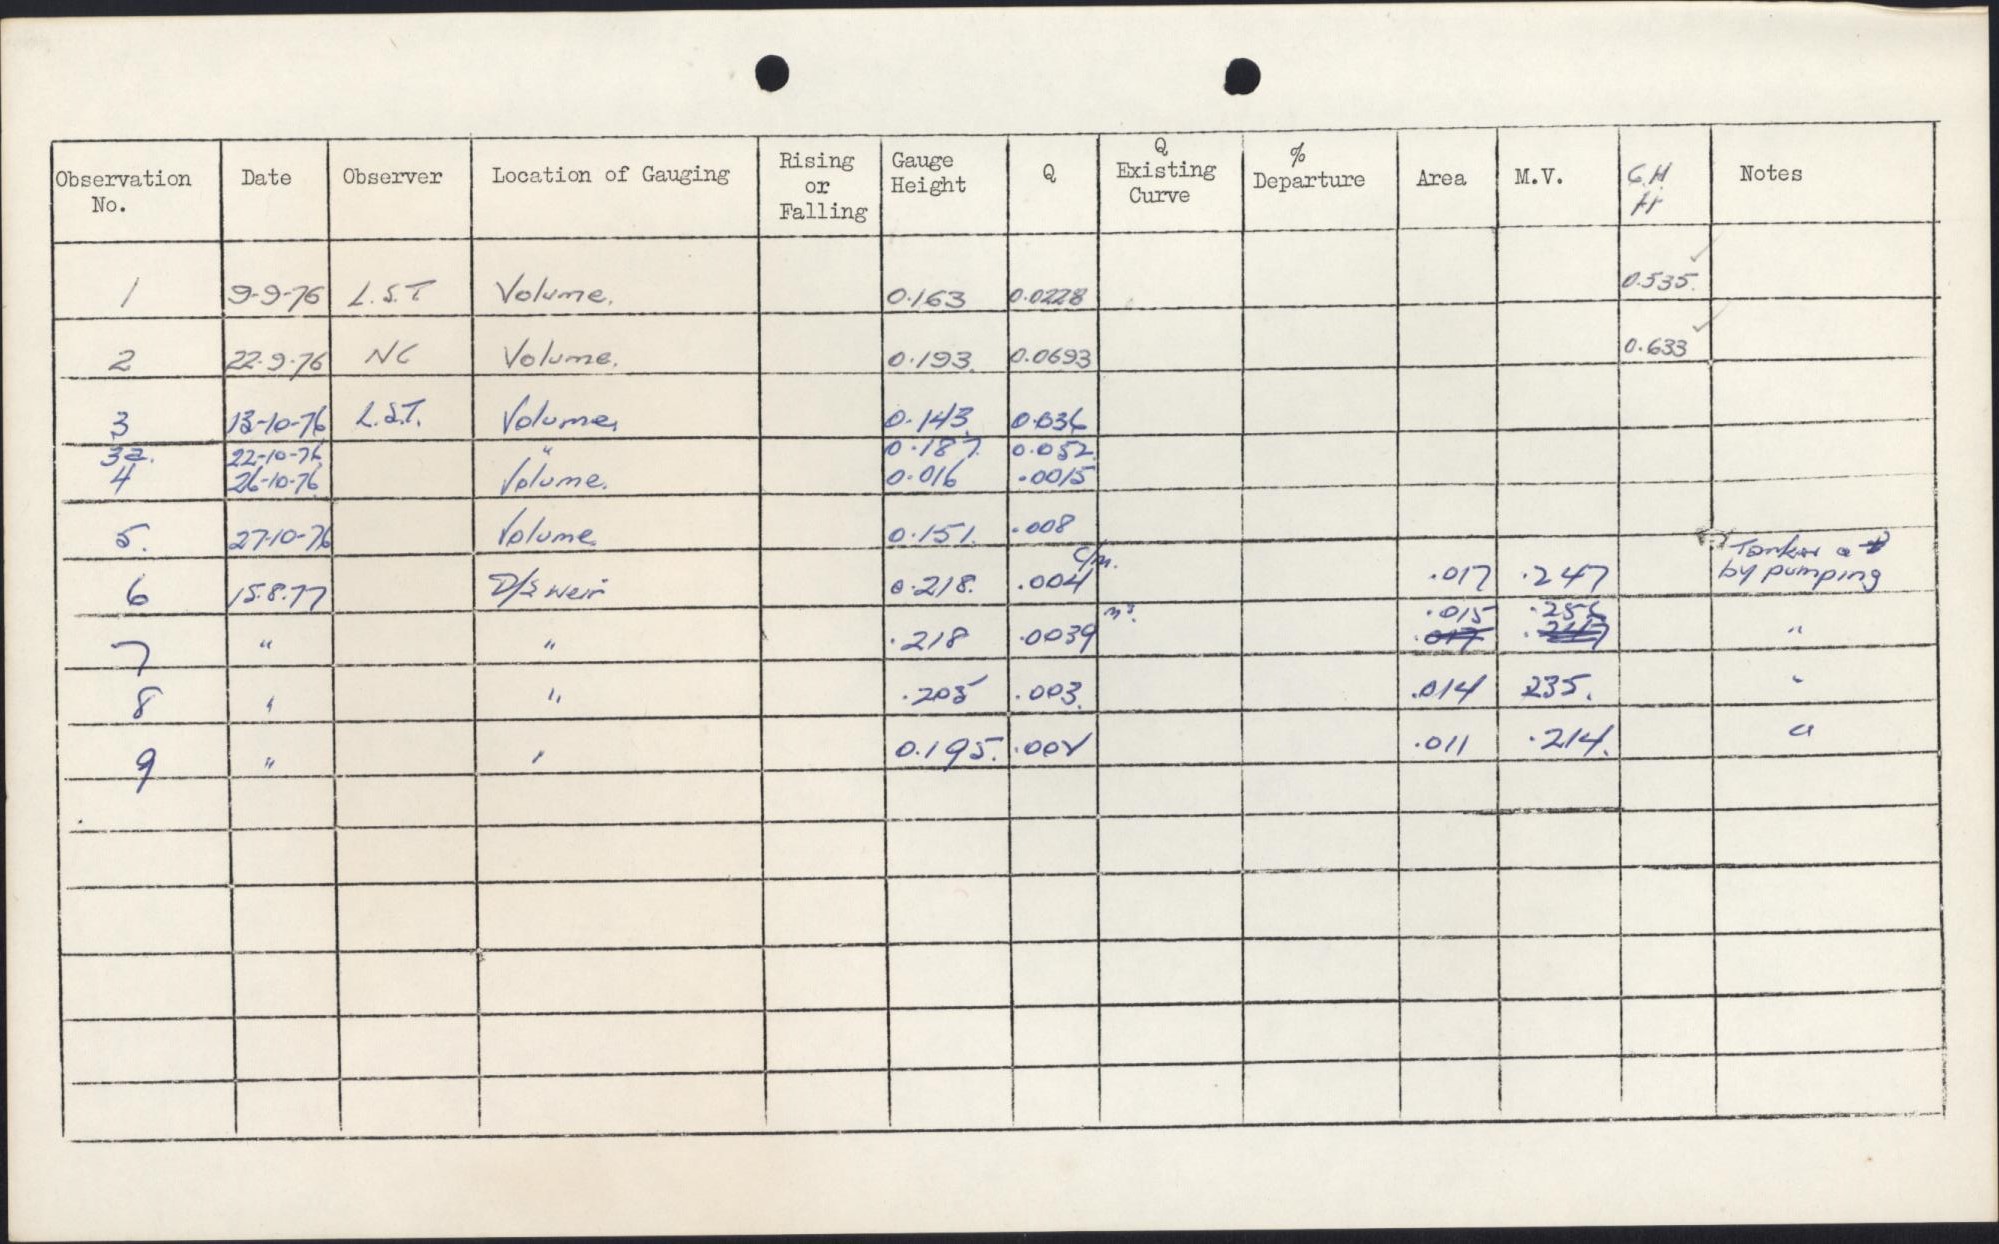 Observation No. Date Observer Location of Gauging Rising or Falling Gauge Height Q Q Existing Curve % Departure Area M.V. G.H ft Notes
1 9-9-76 L.S.T Volume. 0.163 0.0228 0.535.
2 22-9-76 NC Volume. 0.193 0.0693 0.633
3 13-10-76 L.S.T. Volume. 0.143 0.036
3a. 22-10-76 " 0.187 0.052
4 26-10-76 Volume. 0.016 .0015
5. 27-10-76 Volume 0.151 .008
6 15.8.77 D/S weir 0.218. .004 c/m. .017 .247 by pumping
7 " " .218 .0039 m³. .015 "
8 " " .205 .003. .014 235. "
9 " " 0.195. .011 .214. "